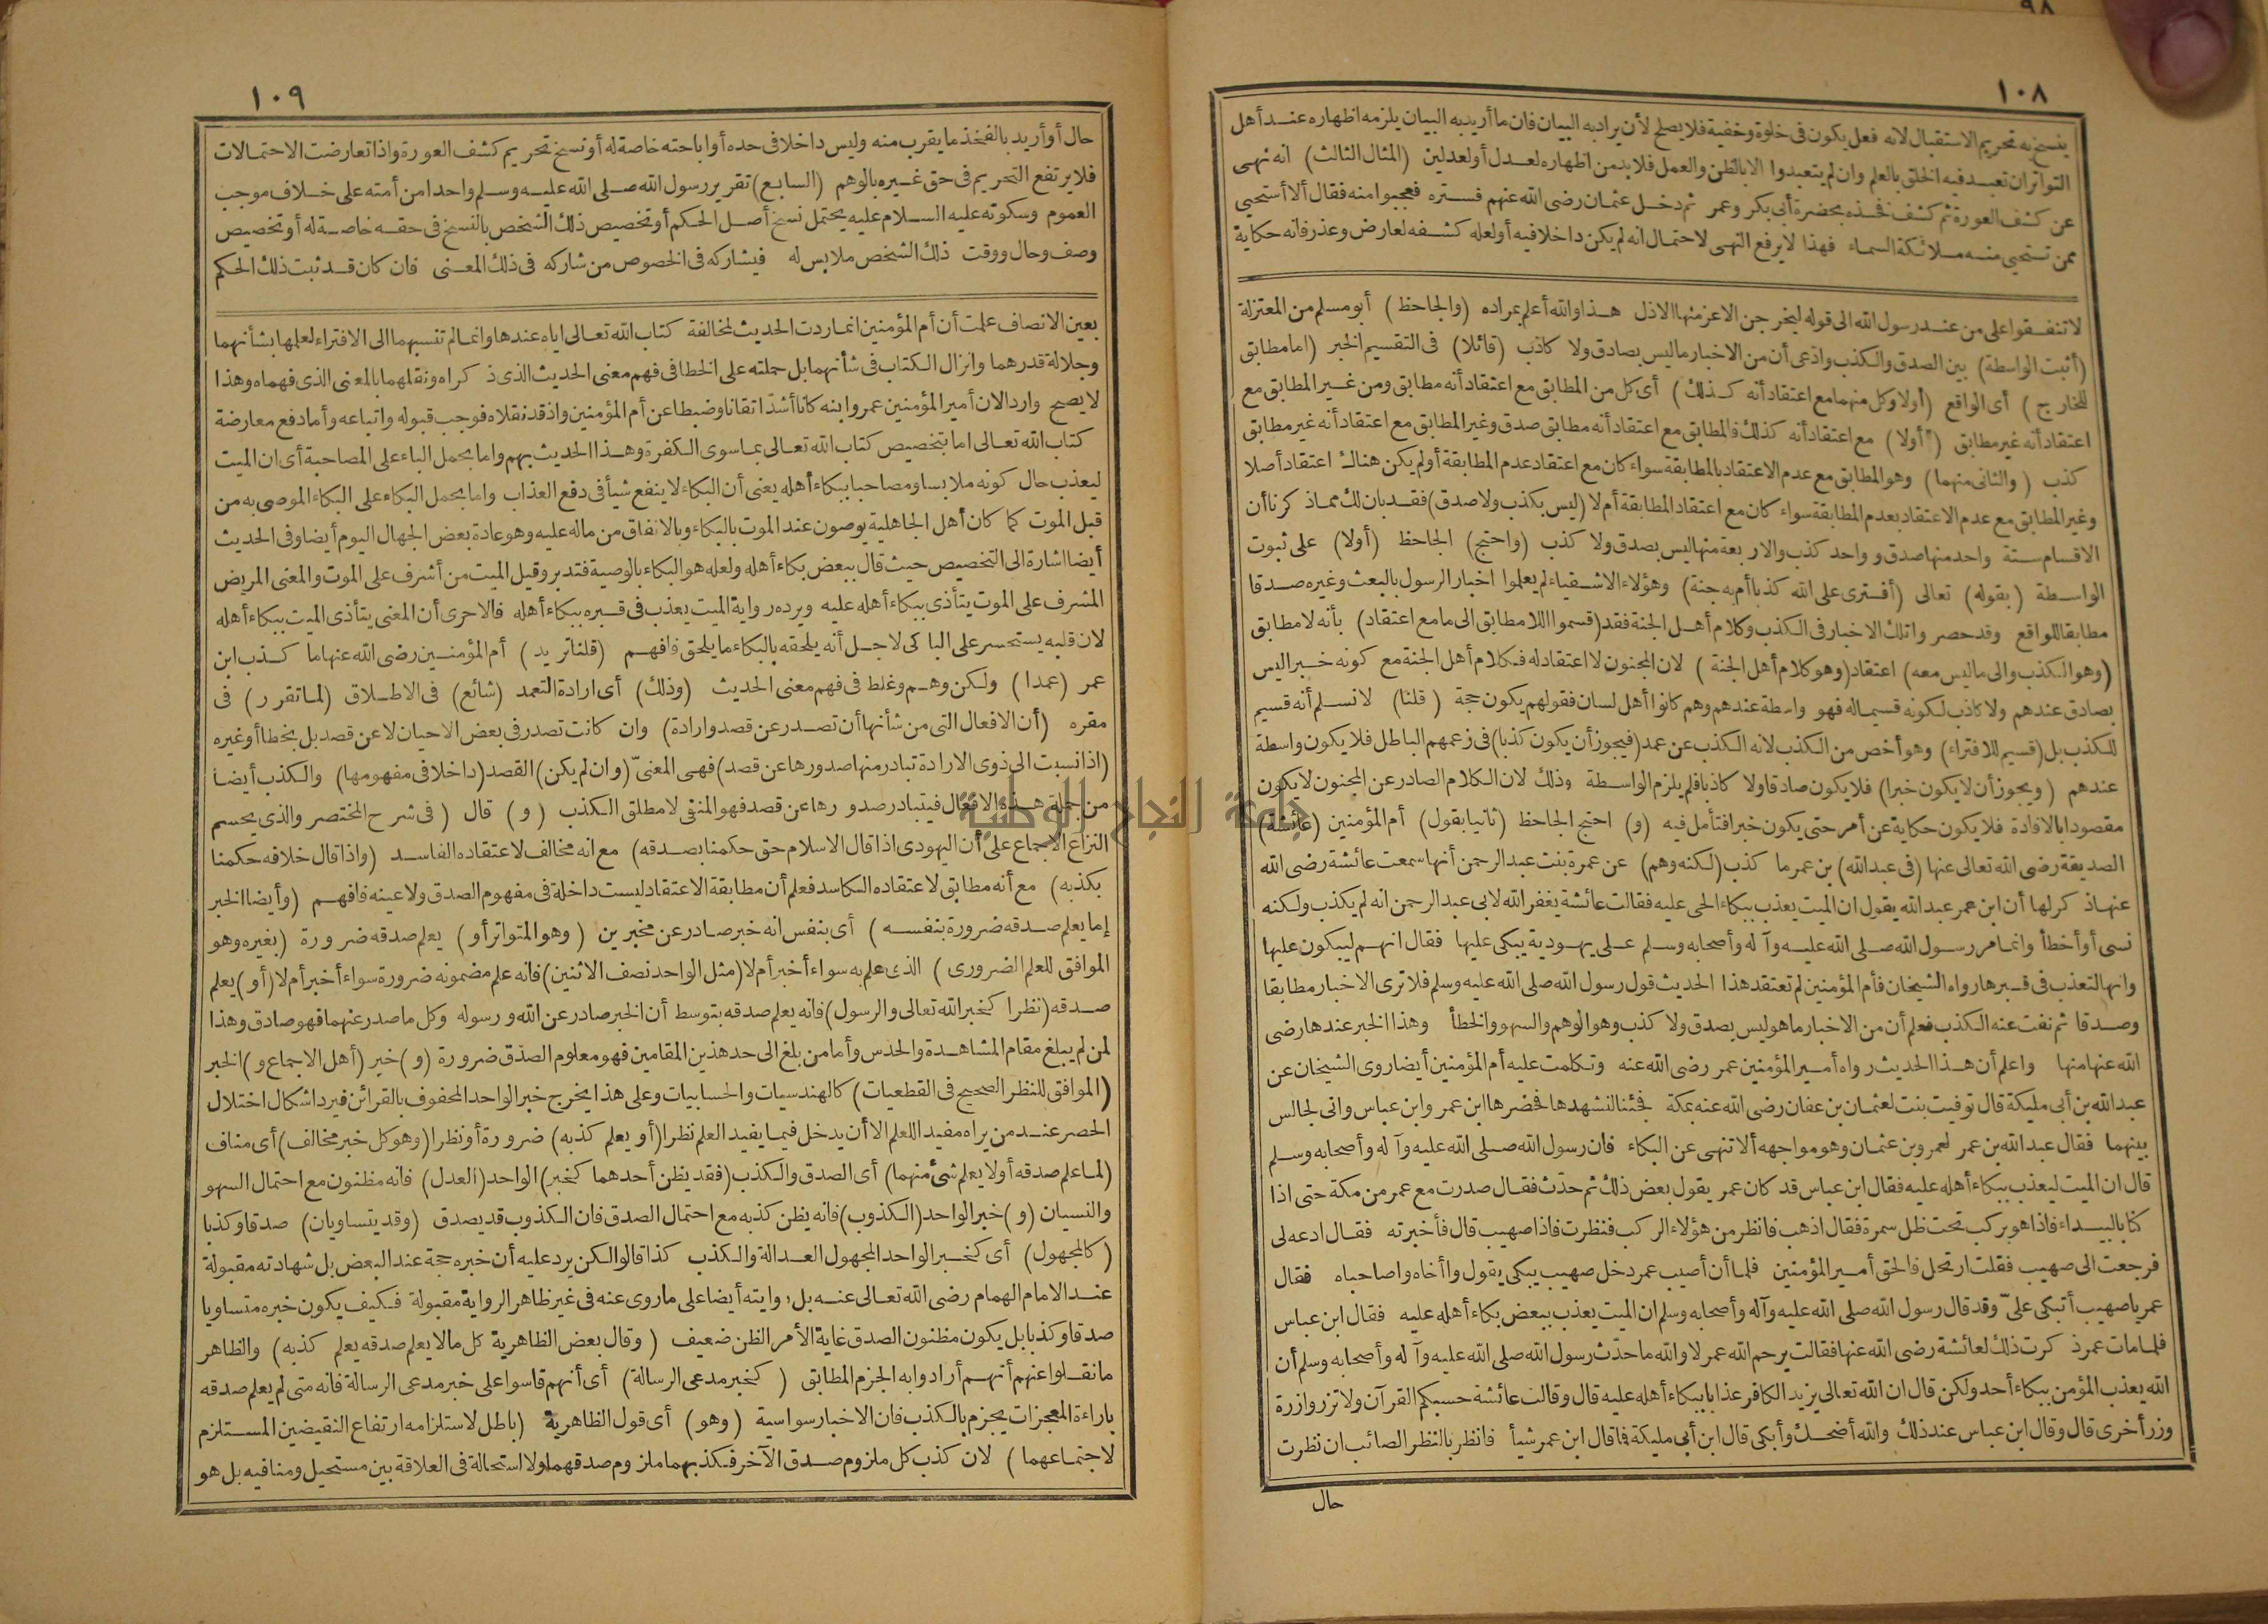 ٩٨
١٠٨
ينسخ به تحريم الاستقبال لانه فعل يكون فى خلوة وخفية فلا يصلح لأن يراد به البيان فان ما أريد به البيان يلزمه اظهاره عند أهل
التواتر ان تعبد فيه الخلق بالعلم وان لم يتعبدوا الا بالظن والعمل فلا بد من اظهاره لعدل أو لعدلين (المثال الثالث) انه نهى
عن كشف العورة ثم كشف فخذه بحضرة أبى بكر وعمر ثم دخل عثمان رضى الله عنهم فستره فعجبوا منه فقال ألا أستحيى
ممن تستحيى منه ملائكة السماء فهذا لا يرفع النهى لاحتمال انه لم يكن داخلا فيه أو لعله كشفه لعارض وعذر فانه حكاية
لا تنفقوا على من عند رسول الله الى قوله ليخرجن الاعز منها الاذل هذا والله أعلم بمراده (والجاحظ) أبو مسلم من المعتزلة
(أثبت الواسطة) بين الصدق والكذب وادعى أن من الاخبار ما ليس بصادق ولا كاذب (قائلا) فى التقسيم الخبر (اما مطابق
للخارج) أى الواقع (أولا وكل منهما مع اعتقاد أنه كذلك) أى كل من المطابق مع اعتقاد أنه مطابق ومن غير المطابق مع
اعتقاد أنه غير مطابق (أولا) مع اعتقاد أنه كذلك فالمطابق مع اعتقاد أنه مطابق صدق وغير المطابق مع اعتقاد أنه غير مطابق
كذب (والثانى منهما) وهو المطابق مع عدم الاعتقاد بالمطابقة سواء كان مع اعتقاد عدم المطابقة أو لم يكن هناك اعتقاد أصلا
وغير المطابق مع عدم الاعتقاد بعدم المطابقة سواء كان مع اعتقاد المطابقة أم لا (ليس بكذب ولا صدق) فقد بان لك مما ذكرنا أن
الاقسام ستة واحد منها صدق وواحد كذب والاربعة منها ليس بصدق ولا كذب (واحتج) الجاحظ (أولا) على ثبوت
الواسطة (بقوله) تعالى (أفترى على الله كذبا أم به جنة) وهؤلاء الاشقياء لم يعلموا اخبار الرسول بالبعث وغيره صدقا
مطابقا للواقع وقد حصر واتلك الاخبار فى الكذب وكلام أهل الجنة فقد (قسموا اللا مطابق الى ما مع اعتقاد) بأنه لا مطابق
(وهو الكذب والى ما ليس معه) اعتقاد (وهو كلام أهل الجنة) لان المجنون لا اعتقاد له فكلام أهل الجنة مع كونه خبرا ليس
بصادق عندهم ولا كاذب لكونه قسيما له فهو واسطة عندهم وهم كانوا أهل لسان فقولهم يكون حجة (قلنا) لا نسلم أنه قسيم
للكذب بل (قسيم للافتراء) وهو أخص من الكذب لانه الكذب عن عمد (فيجوز أن يكون كذبا) فى زعمهم الباطل فلا يكون واسطة
عندهم (ويجوز أن لا يكون خبرا) فلا يكون صادقا ولا كاذبا فلم يلزم الواسطة وذلك لان الكلام الصادر عن المجنون لا يكون
مقصودا بالافادة فلا يكون حكاية عن أمر حتى يكون خبرا فتأمل فيه (و) احتج الجاحظ (ثانيا بقول) أم المؤمنين (عائشة)
الصديقة رضى الله تعالى عنها (فى عبد الله) بن عمر ما كذب (لكنه وهم) عن عمرة بنت عبد الرحمن أنها سمعت عائشة رضى الله
عنها ذكر لها أن ابن عمر عبد الله يقول ان الميت يعذب ببكاء الحى عليه فقالت عائشة يغفر الله لابى عبد الرحمن انه لم يكذب ولكنه
نسى أو أخطأ وانما مر رسول الله صلى الله عليه وآله وأصحابه وسلم على يهودية يبكى عليها فقال انهم ليبكون عليها
وانها لتعذب فى قبرها رواه الشيخان فأم المؤمنين لم تعتقد هذا الحديث قول رسول الله صلى الله عليه وسلم فلا ترى الاخبار مطابقا
وصدقا ثم نفت عنه الكذب فعلم أن من الاخبار ما هو ليس بصدق ولا كذب وهو الوهم والسهو والخطأ وهذا الخبر عندها رضى
الله عنها منها واعلم أن هذا الحديث رواه أمير المؤمنين عمر رضى الله عنه وتكلمت عليه أم المؤمنين أيضا روى الشيخان عن
عبد الله بن أبى مليكة قال توفيت بنت لعثمان بن عفان رضى الله عنه بمكة فجئنا لنشهدها فحضرها ابن عمر وابن عباس وانى لجالس
بينهما فقال عبد الله بن عمر لعمرو بن عثمان وهو مواجهه ألا تنهى عن البكاء فان رسول الله صلى الله عليه وآله وأصحابه وسلم
قال ان الميت ليعذب ببكاء أهله عليه فقال ابن عباس قد كان عمر يقول بعض ذلك ثم حدّث فقال صدرت مع عمر من مكة حتى اذا
كنا بالبيداء فاذا هو بركب تحت ظل سمرة فقال اذهب فانظر من هؤلاء الركب فنظرت فاذا صهيب قال فأخبرته فقال ادعه لى
فرجعت الى صهيب فقلت ارتحل فالحق أمير المؤمنين فلما أن أصيب عمر دخل صهيب يبكى يقول واأخاه واصاحباه فقال
عمر يا صهيب أتبكى علىّ وقد قال رسول الله صلى الله عليه وآله وأصحابه وسلم ان الميت يعذب ببعض بكاء أهله عليه فقال ابن عباس
فلما مات عمر ذكرت ذلك لعائشة رضى الله عنها فقالت يرحم الله عمر لا والله ما حدّث رسول الله صلى الله عليه وآله وأصحابه وسلم أن
الله يعذب المؤمن ببكاء أحد ولكن قال ان الله تعالى يزيد الكافر عذابا ببكاء أهله عليه قال وقالت عائشة حسبكم القرآن ولا تزر وازرة
وزر أخرى قال وقال ابن عباس عند ذلك والله أضحك وأبكى قال ابن أبى مليكة فما قال ابن عمر شيأ فانظر بالنظر الصائب ان نظرت
حال
١٠٩
حال أو أريد بالفخذ ما يقرب منه وليس داخلا فى حده أو اباحته خاصة له أو نسخ تحريم كشف العورة واذا تعارضت الاحتمالات
فلا يرتفع التحريم فى حق غيره بالوهم (السابع) تقرير رسول الله صلى الله عليه وسلم واحدا من أمته على خلاف موجب
العموم وسكوته عليه السلام عليه يحتمل نسخ أصل الحكم أو تخصيص ذلك الشخص بالنسخ فى حقه خاصة له أو تخصيص
وصف وحال ووقت ذلك الشخص ملابس له فيشاركه فى الخصوص من شاركه فى ذلك المعنى فان كان قد ثبت ذلك الحكم
بعين الانصاف علمت أن أم المؤمنين انما ردت الحديث لمخالفة كتاب الله تعالى اياه عندها وانما لم تنسبهما الى الافتراء لعلمها بشأنهما
وجلالة قدرهما وانزال الكتاب فى شأنهما بل حملته على الخطا فى فهم معنى الحديث الذى ذكراه ونقلهما بالمعنى الذى فهماه وهذا
لا يصح واردا لان أمير المؤمنين عمر وابنه كانا أشدّ اتقانا وضبطا عن أم المؤمنين واذ قد نقلاه فوجب قبوله واتباعه وأما دفع معارضة
كتاب الله تعالى اما بتخصيص كتاب الله تعالى بما سوى الكفرة وهذا الحديث بهم واما بحمل الباء على المصاحبة أى ان الميت
ليعذب حال كونه ملابسا ومصاحبا ببكاء أهله يعنى أن البكاء لا ينفع شيأ فى دفع العذاب واما بحمل البكاء على البكاء الموصى به من
قبل الموت كما كان أهل الجاهلية يوصون عند الموت بالبكاء وبالانفاق من ماله عليه وهو عادة بعض الجهال اليوم أيضا وفى الحديث
أيضا اشارة الى التخصيص حيث قال ببعض بكاء أهله ولعله هو البكاء بالوصية فتدبر وقيل الميت من أشرف على الموت والمعنى المريض
المشرف على الموت يتأذى ببكاء أهله عليه ويرده رواية الميت يعذب فى قبره ببكاء أهله فالاحرى أن المعنى يتأذى الميت ببكاء أهله
لان قلبه يستحسر على الباكى لاجل أنه يلحقه بالبكاء ما يلحق فافهم (قلنا تريد) أم المؤمنين رضى الله عنها ما كذب ابن
عمر (عمدا) ولكن وهم وغلط فى فهم معنى الحديث (وذلك) أى ارادة التعمد (شائع) فى الاطلاق (لما تقرر) فى
مقره (أن الافعال التى من شأنها أن تصدر عن قصد وارادة) وان كانت تصدر فى بعض الاحيان لا عن قصد بل بخطا أو غيره
(اذا نسبت الى ذوى الارادة تبادر منها صدورها عن قصد) فهى المعنىّ (وان لم يكن) القصد (داخلا فى مفهومها) والكذب أيضا
من جملة هذه الافعال فيتبادر صدورها عن قصد فهو المنفى لا مطلق الكذب (و) قال (فى شرح المختصر والذى يحسم
النزاع الاجماع على أن اليهودى اذا قال الاسلام حق حكمنا بصدقه) مع انه مخالف لاعتقاده الفاسد (واذا قال خلافه حكمنا
بكذبه) مع أنه مطابق لاعتقاده الكاسد فعلم أن مطابقة الاعتقاد ليست داخلة فى مفهوم الصدق ولا عينه فافهم (وأيضا الخبر
إما يعلم صدقه ضرورة بنفسه) أى بنفس انه خبر صادر عن مخبرين (وهو المتواتر أو) يعلم صدقه ضرورة (بغيره وهو
الموافق للعلم الضرورى) الذى علم به سواء أخبر أم لا (مثل الواحد نصف الاثنين) فانه علم مضمونه ضرورة سواء أخبر أم لا (أو) يعلم
صدقه (نظرا كخبر الله تعالى والرسول) فانه يعلم صدقه بتوسط أن الخبر صادر عن الله ورسوله وكل ما صدر عنهما فهو صادق وهذا
لمن لم يبلغ مقام المشاهدة والحدس وأما من بلغ الى حد هذين المقامين فهو معلوم الصدق ضرورة (و) خبر (أهل الاجماع و) الخبر
(الموافق للنظر الصحيح فى القطعيات) كالهندسيات والحسابيات وعلى هذا يخرج خبر الواحد المحفوف بالقرائن فيرد اشكال اختلال
الحصر عند من يراه مفيدا للعلم الا أن يدخل فيما يفيد العلم نظرا (أو يعلم كذبه) ضرورة أو نظرا (وهو كل خبر مخالف) أى مناف
(لما علم صدقه أو لا يعلم شئ منهما) أى الصدق والكذب (فقد يظن أحدهما كخبر) الواحد (العدل) فانه مظنون مع احتمال السهو
والنسيان (و) خبر الواحد (الكذوب) فانه يظن كذبه مع احتمال الصدق فان الكذوب قد يصدق (وقد يتساويان) صدقا وكذبا
(كالمجهول) أى كخبر الواحد المجهول العدالة والكذب كذا قالوا لكن يرد عليه أن خبره حجة عند البعض بل شهادته مقبولة
عند الامام الهمام رضى الله تعالى عنه بل روايته أيضا على ما روى عنه فى غير ظاهر الرواية مقبولة فكيف يكون خبره متساويا
صدقا وكذبا بل يكون مظنون الصدق غاية الأمر الظن ضعيف (وقال بعض الظاهرية كل ما لا يعلم صدقه يعلم كذبه) والظاهر
ما نقلوا عنهم أنهم أرادوا به الجزم المطابق (كخبر مدعى الرسالة) أى أنهم قاسوا على خبر مدعى الرسالة فانه متى لم يعلم صدقه
باراءة المعجزات يجزم بالكذب فان الاخبار سواسية (وهو) أى قول الظاهرية (باطل لاستلزامه ارتفاع النقيضين المستلزم
لاجتماعهما) لان كذب كل ملزوم صدق الآخر فكذبهما ملزوم صدقهما ولا استحالة فى العلاقة بين مستحيل ومنافيه بل هو
جامعة النجاح الوطنية